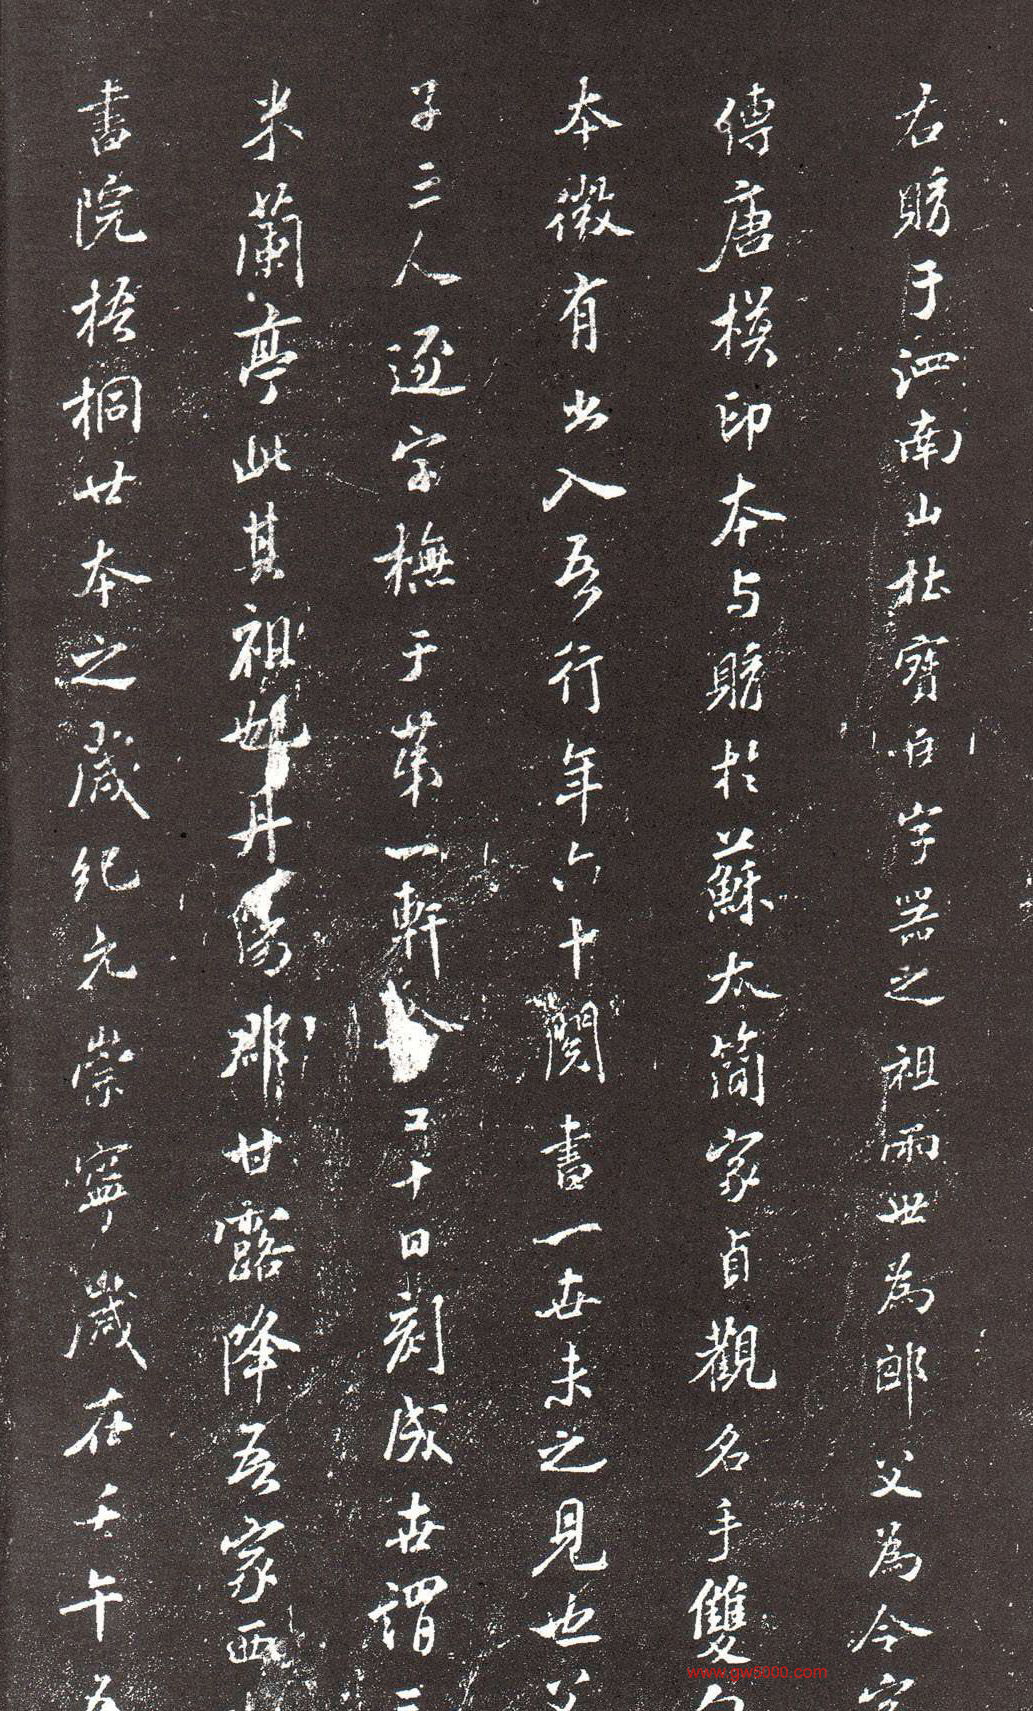 右購于泗南山杜寶臣字器之祖雨世為郎父為令字
傳唐模印本与購於蘇太簡家貞觀名手雙勾
本微有出入吾行年六十閱書一世未之見也父
子三人逐字橅于第一軒 五十日刻成世謂三
米蘭亭此其祖也丹陽郡甘露降吾家西
書院梧桐廿本之歲紀元崇寧歲在壬午五
www.gw5000.com